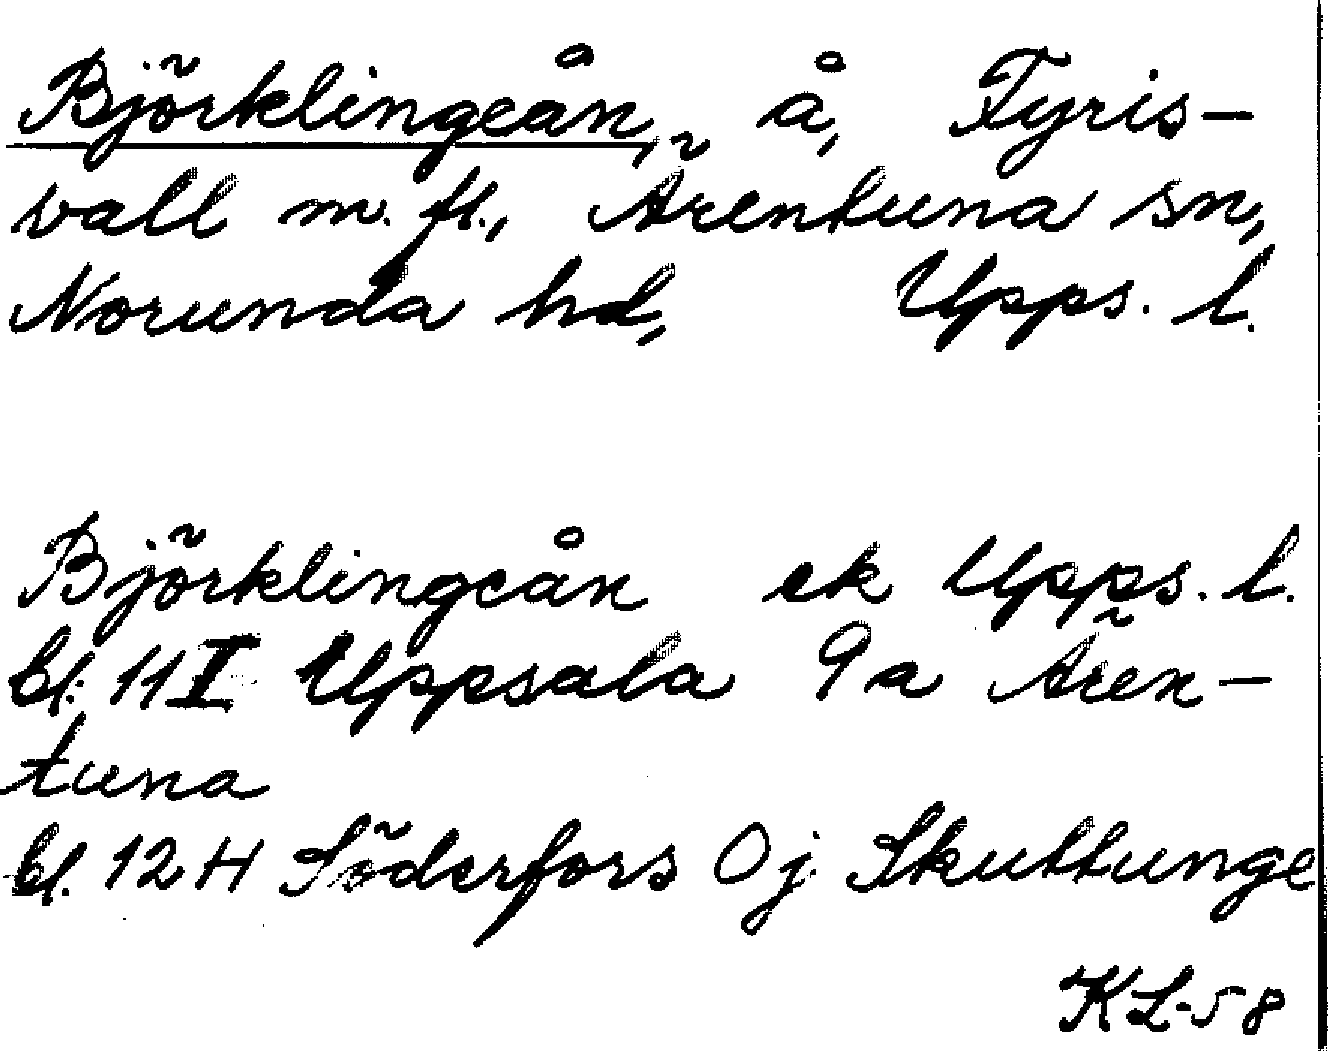 Björklingeån, å, Fyris-
vall m. fl., Ärentuna sn,
Norunda hd, Upps. l.
Björklingeån ek Upps. l.
bl. 11 I Uppsala 9a Ären-
tuna
bl. 12 H Söderfors 0j Skuttunge
KL-58